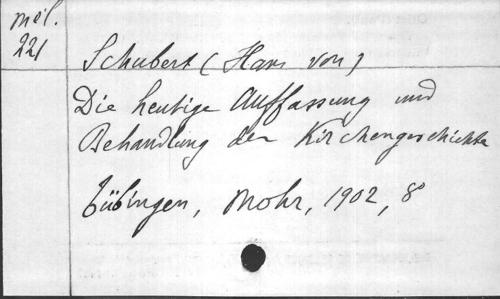 mél.
221
Schubert (Hans von)
Die heutige Auffassung und
Behandlung der Kirchengeschichte
Tübingen, Mohr, 1902, 8°